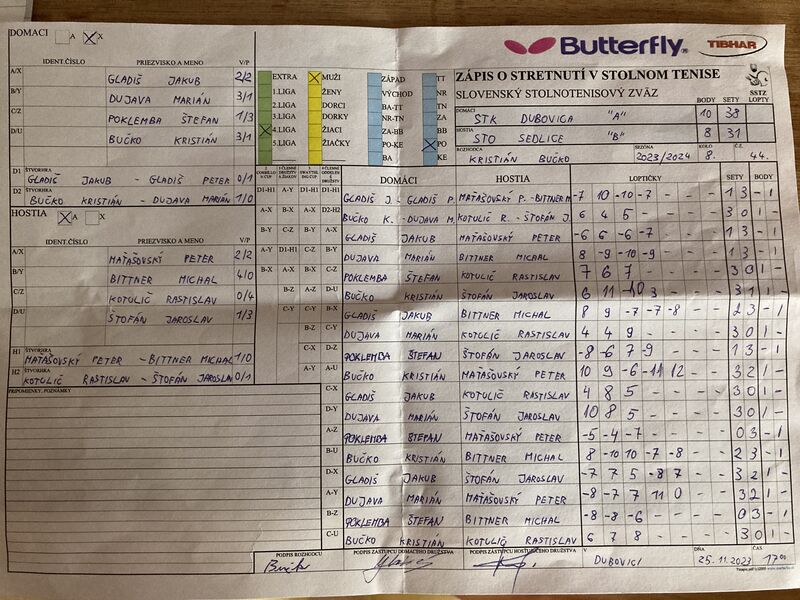 DOMÁCI A X
IDENT.ČÍSLO PRIEZVISKO A MENO V/P
A/X GLADIŠ JAKUB 2/2
B/Y DUJAVA MARIÁN 3/1
C/Z POKLEMBA ŠTEFAN 1/3
D/U BUČKO KRISTIÁN 3/1
D1 ŠTVORHRA
GLADIŠ JAKUB - GLADIŠ PETER 0/1
D2 ŠTVORHRA
BUČKO KRISTIÁN - DUJAVA MARIÁN 1/0
HOSTIA A X
IDENT.ČÍSLO PRIEZVISKO A MENO V/P
A/X MAŤAŠOVSKÝ PETER 2/2
B/Y BITTNER MICHAL 4/0
C/Z KOTULIČ RASTISLAV 0/4
D/U ŠTOFÁN JAROSLAV 1/3
H1 ŠTVORHRA
MAŤAŠOVSKÝ PETER - BITTNER MICHAL 1/0
H2 ŠTVORHRA
KOTULIČ RASTISLAV - ŠTOFÁN JAROSLAV 0/1
PRIPOMIENKY, POZNÁMKY
EXTRA MUŽI ZÁPAD TT
1.LIGA ŽENY VÝCHOD NR
2.LIGA DORCI BA-TT TN
3.LIGA DORKY ZA-NR ZA
4.LIGA ŽIACI ZA-BB BB
5.LIGA ŽIAČKY PO-KE PO
BA KE
Butterfly TIBHAR
ZÁPIS O STRETNUTÍ V STOLNOM TENISE
SLOVENSKÝ STOLNOTENISOVÝ ZVÄZ SSTZ
BODY SETY LOPTY
DOMÁCI STK DUBOVICA "A" 10 38
HOSTIA STO SEDLICE "B" 8 31
ROZHODCA KRISTIÁN BUČKO SEZÓNA 2023/2024 KOLO 8. Č.Z. 44.
DOMÁCI HOSTIA LOPTIČKY SETY BODY
D1-H1 GLADIŠ J. - GLADIŠ P. MAŤAŠOVSKÝ P. - BITTNER M. -7 10 -10 -7 - - - 1 3 - 1
D2-H2 BUČKO K. - DUJAVA M. KOTULIČ R. - ŠTOFÁN J. 6 4 5 - - - - 3 0 1 -
A-X GLADIŠ JAKUB MAŤAŠOVSKÝ PETER -6 6 -6 -7 - - - 1 3 - 1
B-Y DUJAVA MARIÁN BITTNER MICHAL 8 -9 -10 -9 - - - 1 3 - 1
C-Z POKLEMBA ŠTEFAN KOTULIČ RASTISLAV 7 6 7 - - - - 3 0 1 -
D-U BUČKO KRISTIÁN ŠTOFÁN JAROSLAV 6 11 -10 3 - - - 3 1 1 -
B-X GLADIŠ JAKUB BITTNER MICHAL 8 9 -7 -7 -8 - - 2 3 - 1
C-Y DUJAVA MARIÁN KOTULIČ RASTISLAV 4 4 9 - - - - 3 0 1 -
D-Z POKLEMBA ŠTEFAN ŠTOFÁN JAROSLAV -8 -6 7 -9 - - - 1 3 - 1
A-U BUČKO KRISTIÁN MAŤAŠOVSKÝ PETER 10 9 -6 -11 12 - - 3 2 1 -
C-X GLADIŠ JAKUB KOTULIČ RASTISLAV 4 8 5 - - - - 3 0 1 -
D-Y DUJAVA MARIÁN ŠTOFÁN JAROSLAV 10 8 5 - - - - 3 0 1 -
A-Z POKLEMBA ŠTEFAN MAŤAŠOVSKÝ PETER -5 -4 -7 - - - - 0 3 - 1
B-U BUČKO KRISTIÁN BITTNER MICHAL 8 -10 10 -7 -8 - - 2 3 - 1
D-X GLADIŠ JAKUB ŠTOFÁN JAROSLAV -7 7 5 -8 7 - - 3 2 1 -
A-Y DUJAVA MARIÁN MAŤAŠOVSKÝ PETER -8 -7 7 11 0 - - 3 2 1 -
B-Z POKLEMBA ŠTEFAN BITTNER MICHAL -8 -8 -6 - - - - 0 3 - 1
C-U BUČKO KRISTIÁN KOTULIČ RASTISLAV 6 7 8 - - - - 3 0 1 -
PODPIS ROZHODCU PODPIS ZÁSTUPCU DOMÁCEHO DRUŽSTVA PODPIS ZÁSTUPCU HOSŤUJÚCEHO DRUŽSTVA V DUBOVICI DŇA 25.11.2023 ČAS 17:00